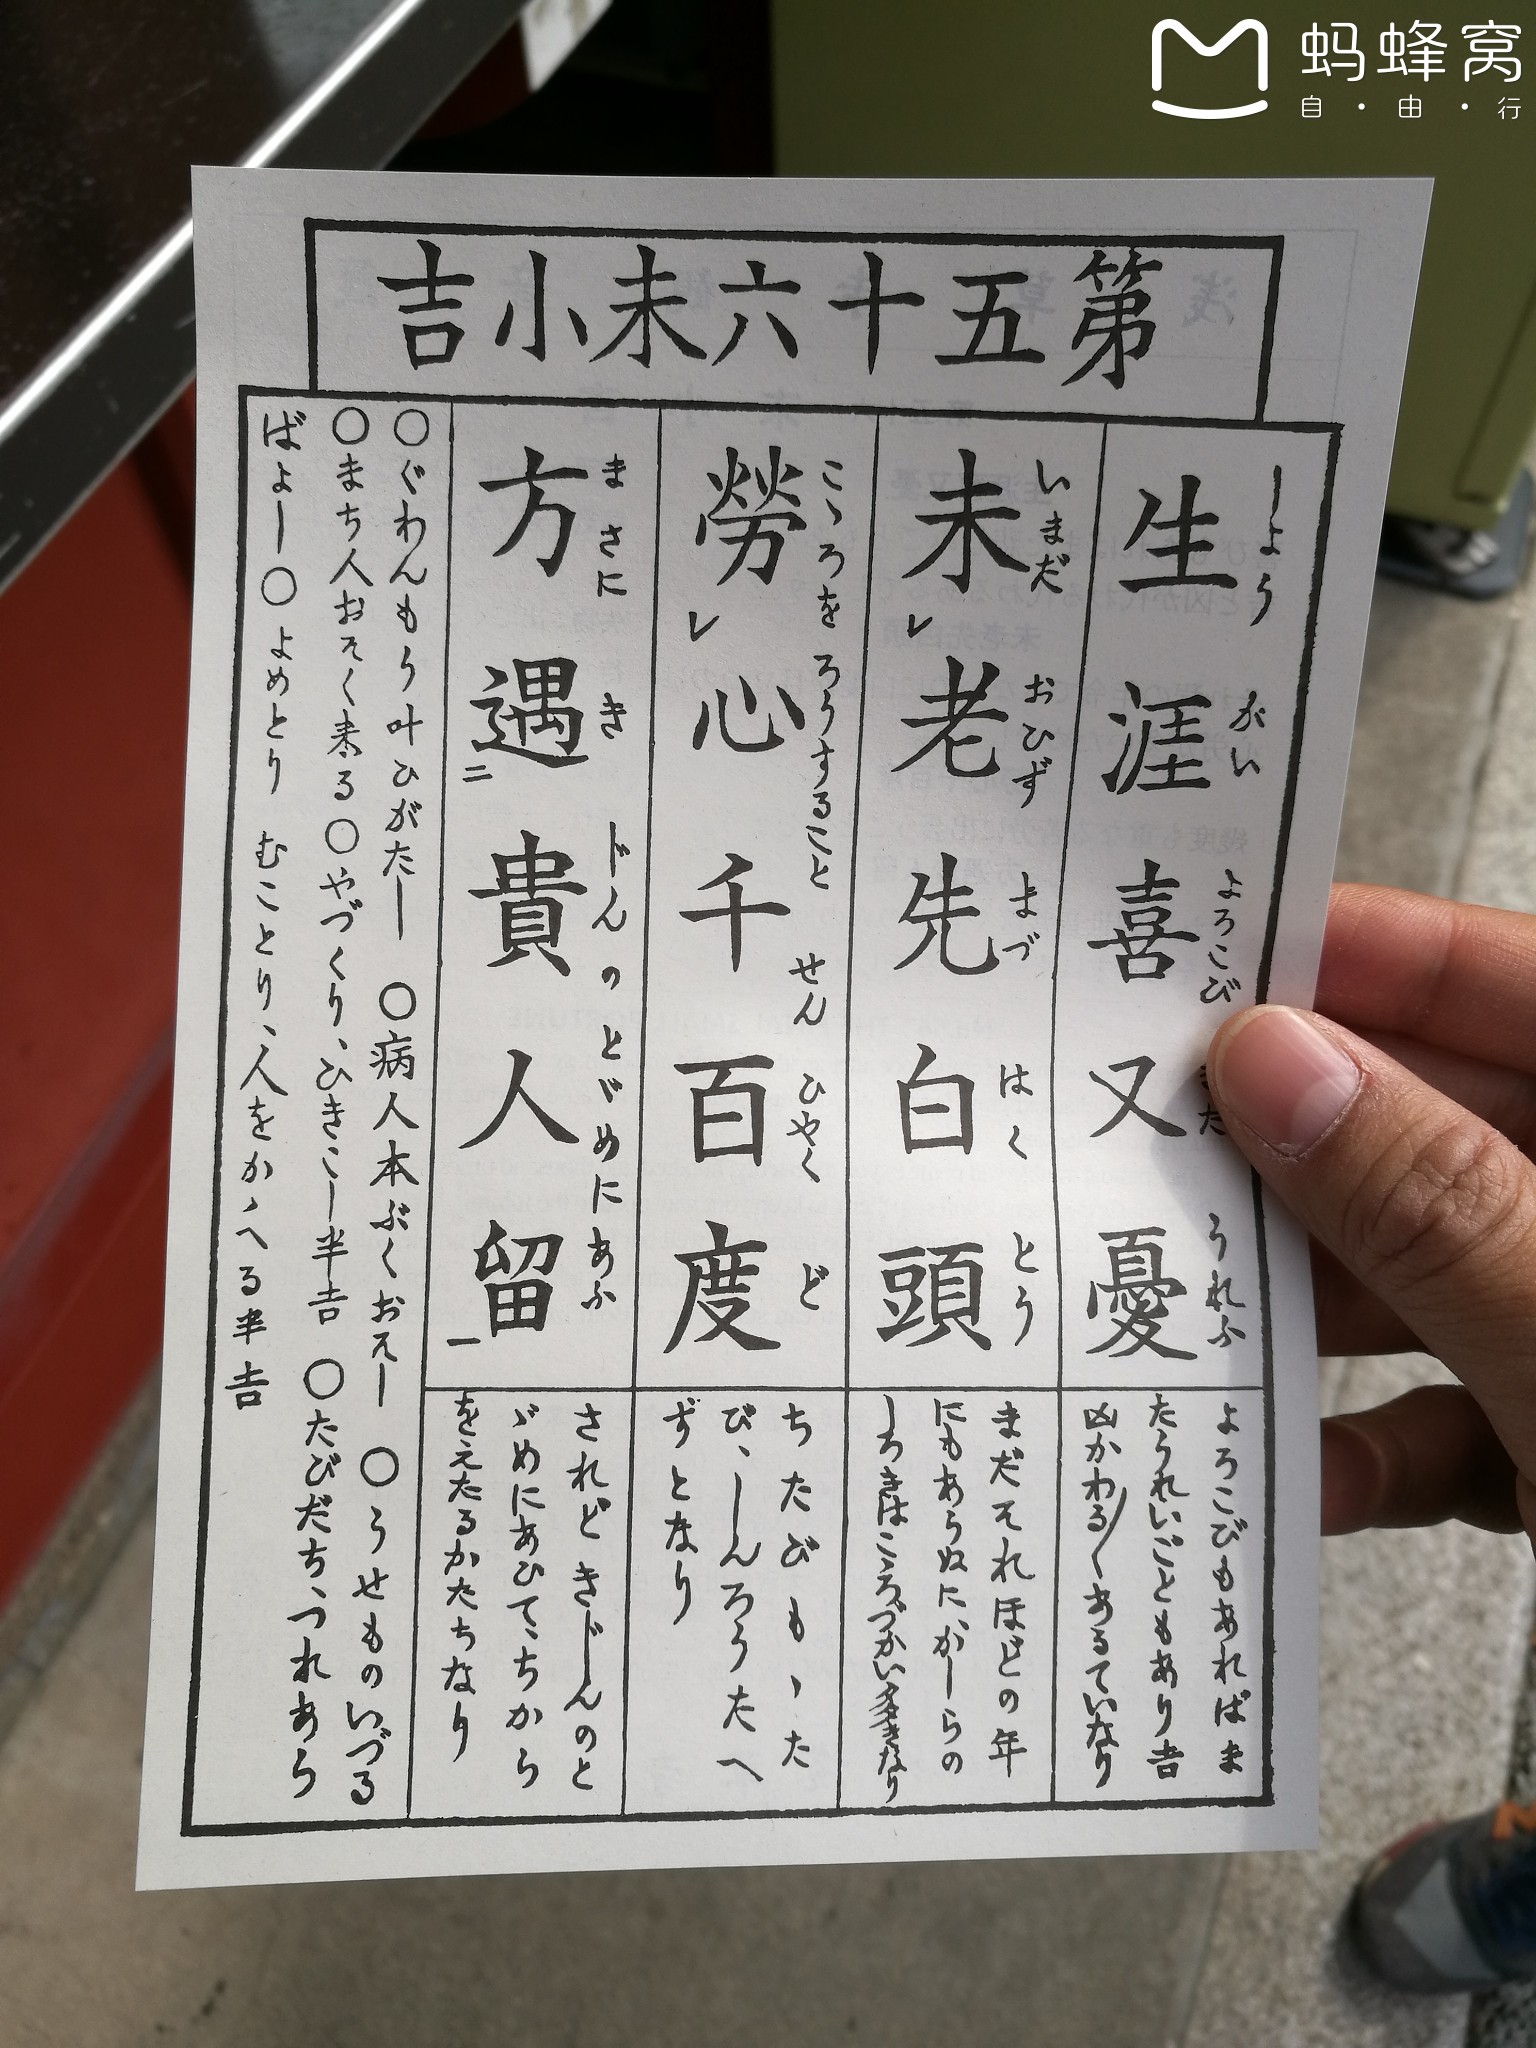 蚂蜂窝
自·由·行
第五十六未小吉
しようがい よろこび また うれふ
生涯喜又憂
いまだ おひず まづ はく とう
未レ老先白頭
こゝろを ろうすること せん ひやく ど
勞レ心千百度
まさに き じんの とゞめにあふ
方遇二貴人留一
よろこびもあればま
たうれいごともあり吉
凶かわる〲あるていなり
まだそれほどの年
にもあらぬに、かしらの
しろきはこゝろづかい多きなり
ちたびもゝた
び、しんろうたへ
ずとなり
されどきじんのと
ゞめにあひて、ちから
をえたるかたちなり
○ぐわんもう叶ひがたし ○病人本ぶくおそし ○うせものいづる
○まち人おそく来る○やづくり、ひきこし半吉 ○たびだち、つれあら
ばよし○よめとり むことり、人をかゝへる半吉